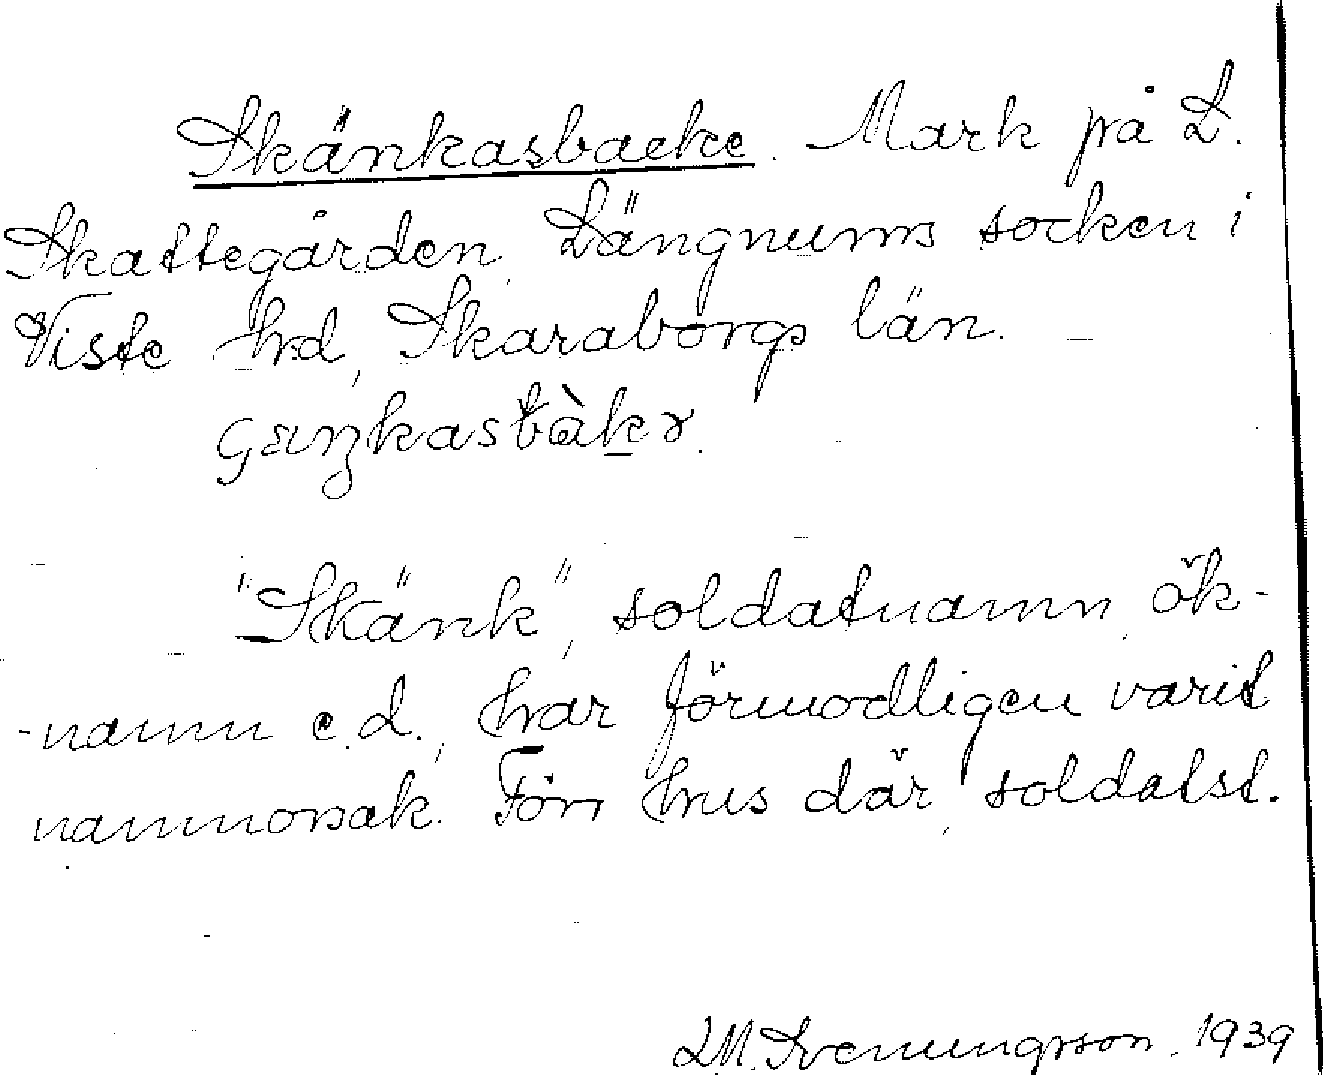 Skänkasbacke. Mark på L.
Skattegården, Längnums socken i
Viste hd, Skaraborgs län.
"Skänk", soldatnamn, ök-
-namn e.d., har förmodligen varit
namnorsak. Förr hus där, soldatst.
L.M. Svenungsson, 1939